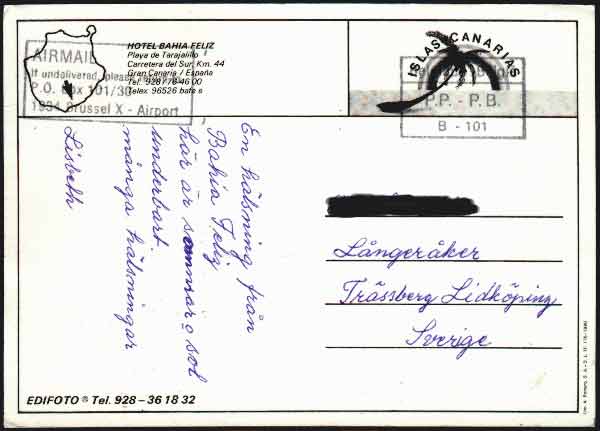 AIRMAIL
If undelivered, please
P.O. Box 101/30
1934 Brüssel X - Airport
HOTEL BAHIA FELIZ
Playa de Tarajalillo
Carretera del Sur, Km. 44
Gran Canaria / España
Tel. 928 / 76 46 00
Telex 96526 bafe s
ISLAS CANARIAS
P.P. - P.B.
B - 101
En hälsning från
Bahia Feliz
här är sommar o sol
underbart.
många hälsningar
Lisbeth
Långeråker
Trässberg Lidköping
Sverige
EDIFOTO ® Tel. 928 - 36 18 32